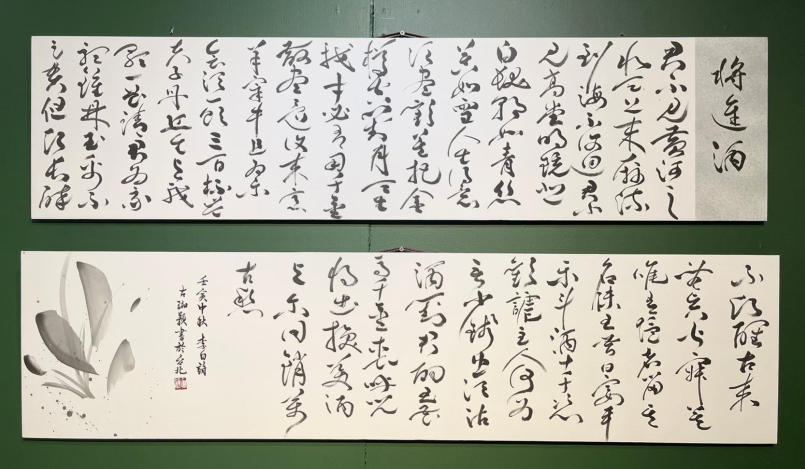 將進酒
君不見黃河之
水天上來奔流
到海不復迴君不
見高堂明鏡悲
白髮朝如青絲
暮如雪人生得意
須盡歡莫把金
樽空對月天生
我才必有用千金
散盡還復來烹
羊宰牛且為樂
會須一飲三百杯岑
夫子丹丘生與
歌一曲請君為我
玉不
足貴但願長醉
不願醒古來
皆寂寞
惟有飲者留其
名陳王昔日宴平
樂斗酒十千恣
歡謔主人何為
言少錢徑須沽
取對君酌五花
馬千金裘呼兒
將出換美酒
與爾同銷萬
古愁
壬寅中秋 李白詩
書於台北